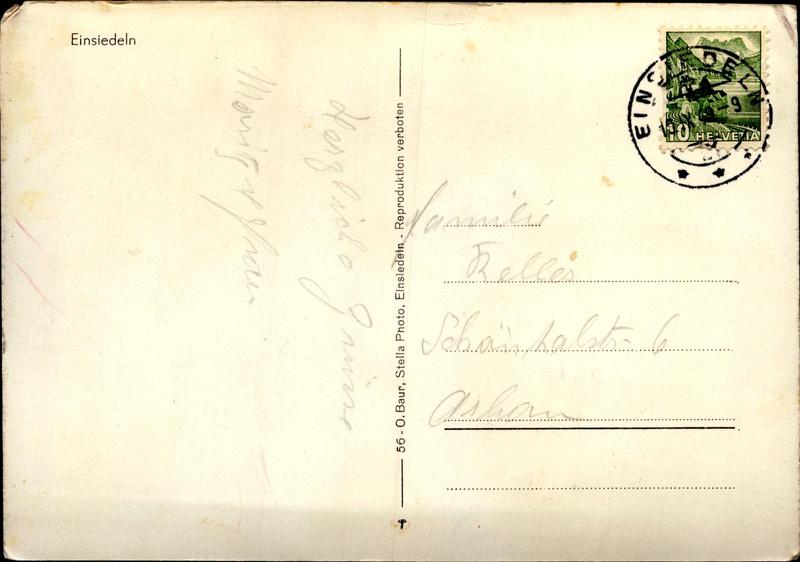 Einsiedeln
Herzliche Grüsse
56 - O. Baur, Stella Photo, Einsiedeln - Reproduktion verboten
EINSIEDELN
10 HELVETIA
Familie
Keller
Schöntalstr. 6
Arbon